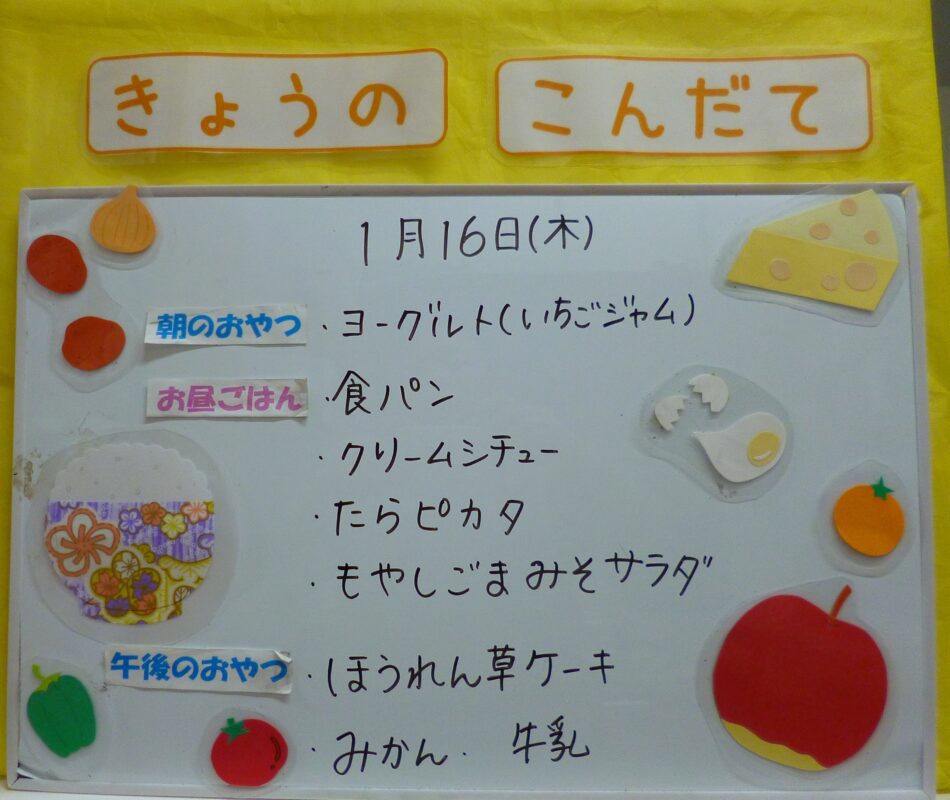 きょうの こんだて
1月16日(木)
朝のおやつ ・ヨーグルト(いちごジャム)
お昼ごはん ・食パン
・クリームシチュー
・たらピカタ
・もやしごまみそサラダ
午後のおやつ ・ほうれん草ケーキ
・みかん・ 牛乳